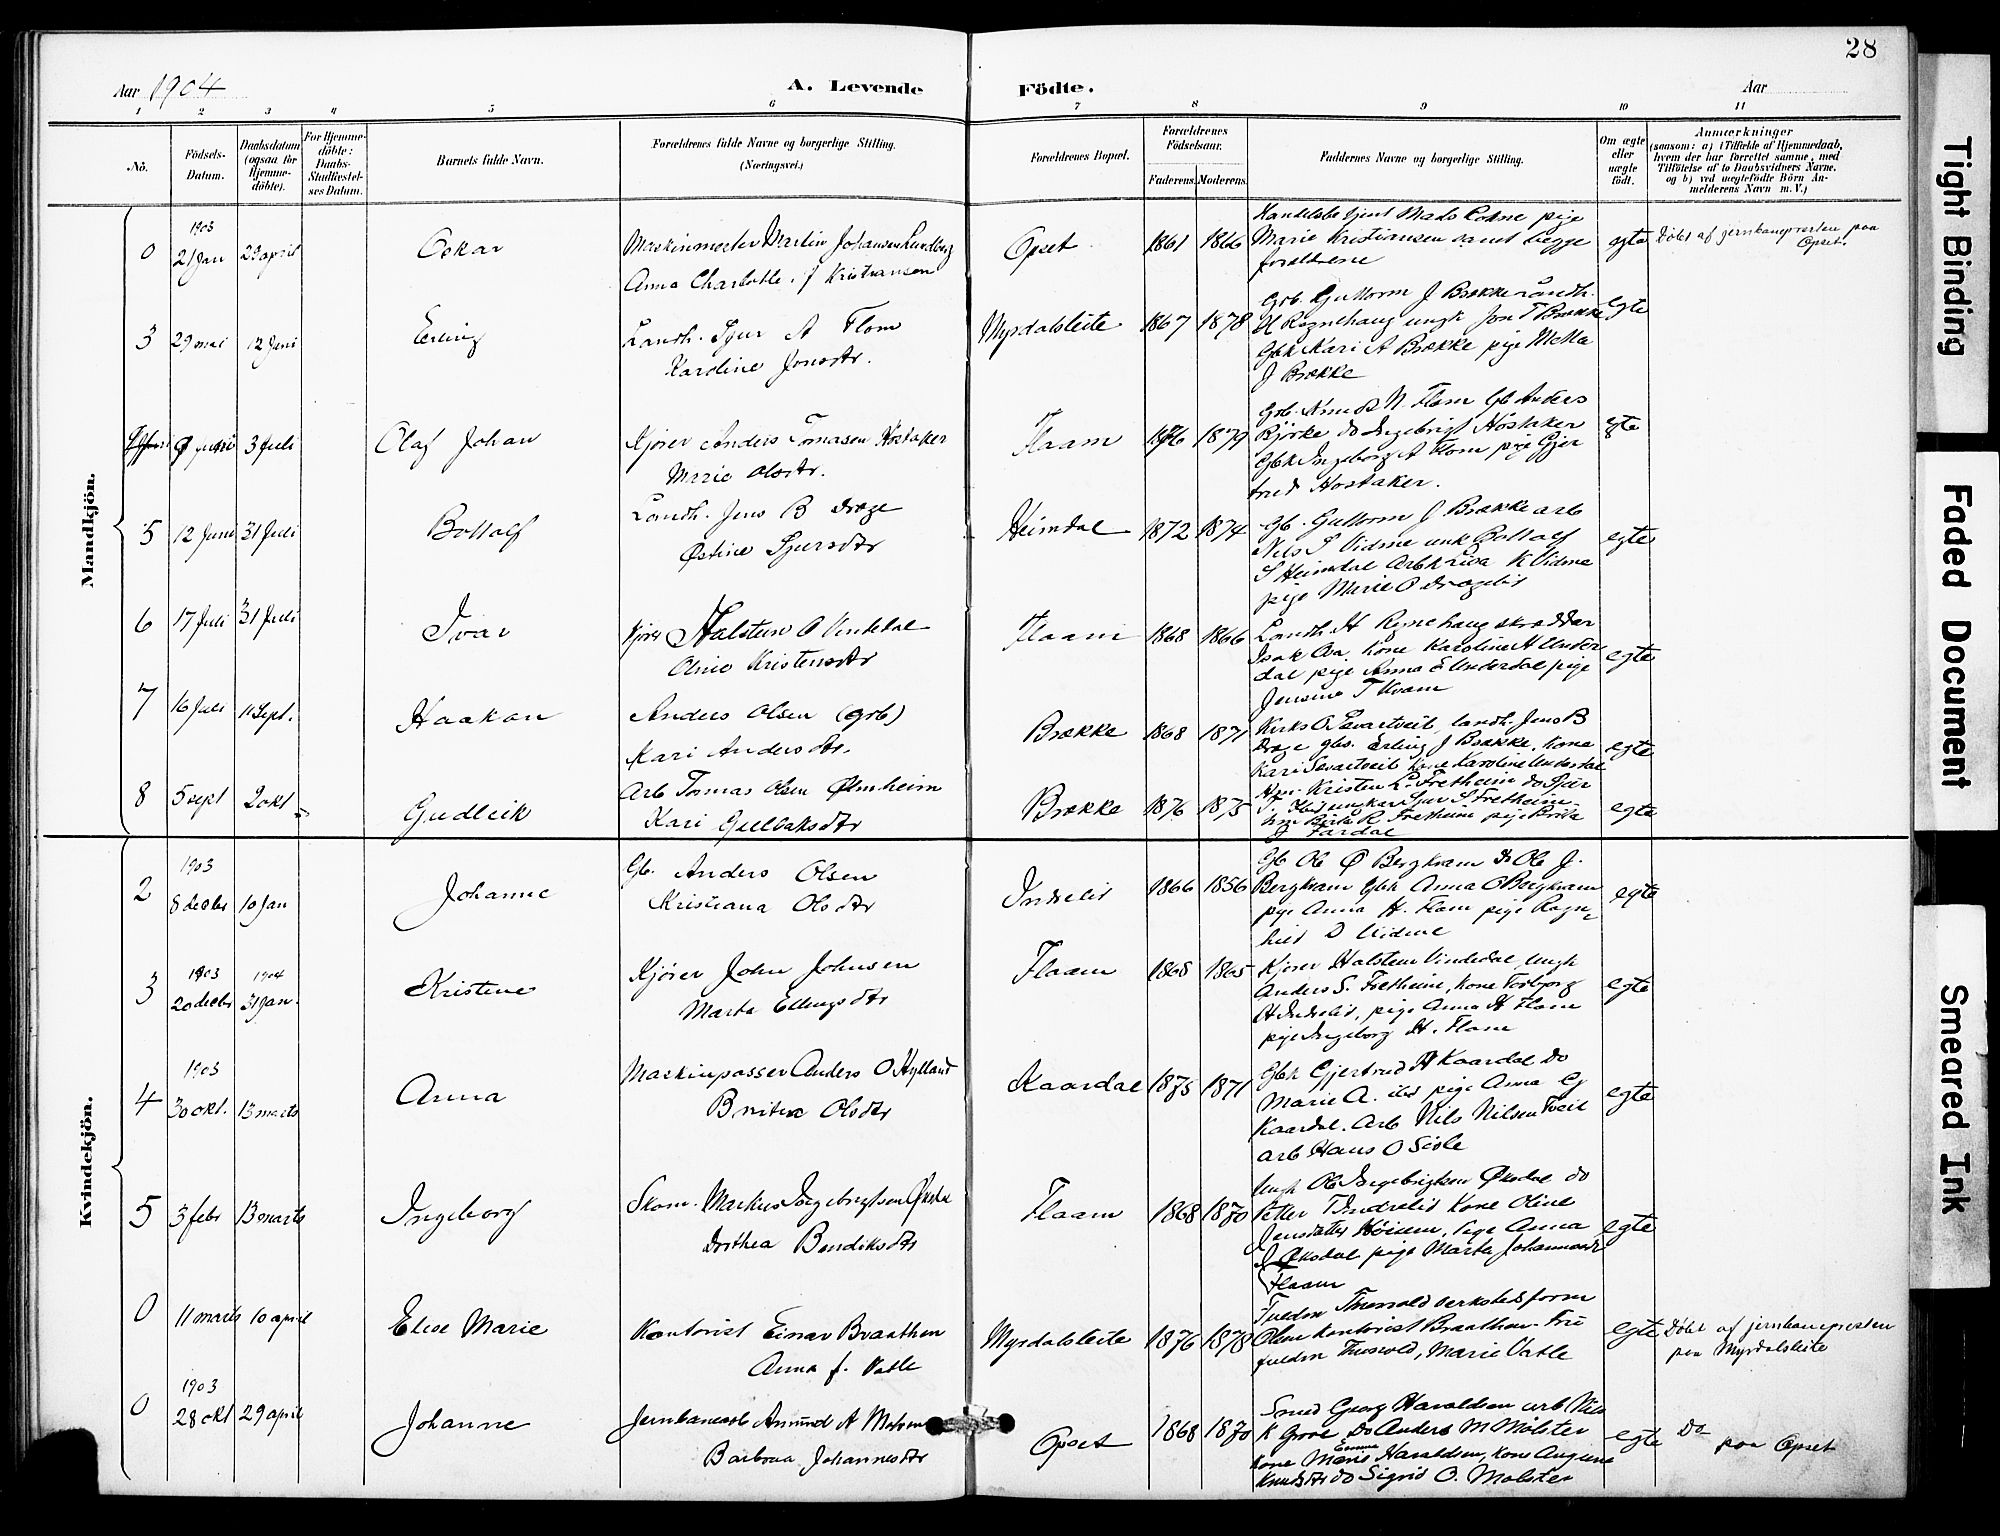 28
Aar 1904
A. Levende Födte.
Aar
1 2 3 4 5 6 7 8 9 10 11
No.
Födsels-Datum.
Daabsdatum (ogsaa for Hjemme-döbte).
For Hjemme-döbte: Daabs-Stadfæstel-ses Datum.
Barnets fulde Navn.
Forældrenes fulde Navne og borgerlige Stilling. (Næringsvei.)
Forældrenes Bopæl.
Forældrenes Födselsaar.
Faderens. Moderens.
Faddernes Navne og borgerlige Stilling.
Om ægte eller uægte födt.
Anmærkninger
(saasom: a) i Tilfælde af Hjemmedaab, hvem der har forrettet samme, med Tilföielse af to Daabsvidners Navne, og b) ved uægtefödte Börn An-melderens Navn m. V.)
Mandkjön.
0 1903 21 Jan 29 april Oskar
Maskinmester Martin Johansen Lundberg
Anna Charlotte f Kristiansen
Opset 1861 1866
Marie Kristiansen samt begge
forældrene
egte Döbt af jernbanepresten paa
Opset.
3 29 mai 12 Juni Erling
Landh. Sjur A Flom
Karoline Jonsdtr.
Myrdalsleite 1867 1878
Grb. Guttorm J Brække Landh.
H Rognehaug ungk Jon T Brække
Gbk Kari A Brække pige Metta
J Brække
egte
3 Juli Olaf Johan
Kjörer Anders Tomasen Høstaker
Marie Olsdtr.
Flaam 1876 1879
Grb. Knud N. Flam Gb Anders
Bjørke do Ingebrigt Høstaker
Gbk Ingeborg A Flom pige Gjer
trud Høstaker.
egte
5 12 Juni 31 Juli Bottolf
Landh. Jens B Drage
Østine Sjursdtr
Heimdal 1872 1874
Gb. Guttorm J Brække arb
Nils S Vidme unk Bottolf
S Heimdal Arbk Liva K Vidme
pige Marie O Drægelid
egte
6 17 Juli 31 Juli Ivar
Kjörer Halsten O Vindedal
Oline Kristensdtr
Flaam 1868 1866
Landh H Rognehaug skrædder
Isak Ova Kone Karoline H Under
dal pige Anna E Underdal pige
Jensine T Kvam
egte
7 16 Juli 11 Sept. Haakon
Anders Olsen (grb)
Kari Andersdtr.
Brække 1868 1871
Drage gbs. Erling J Brække, Kone
Kari Sevartveit Kone Karoline Underdal
egte
8 5 sept 2 okt Gudleik
Arb Tomas Olsen Ølmheim
Kari Gullaksdtr
Brække 1876 1875
Kristen L. Fretheim do Sjur
J Fardal
egte
Kvindekjön.
2 1903 8 decbr 10 Jan Johanne
Gb. Anders Olsen
Kristiana Olsdtr
Indrelid 1866 1856
Gb Ole Ø Bergkvam do Ole J.
Bergkvam Gbk Anna O Bergkvam
pige Anna H. Flam pige Ragn-
hild D Vidme
egte
3 1903 20 decbr 1904 31 Jan. Kristine
Kjörer John Johnsen
Marta Ellingsdtr
Flaam 1868 1865
Kjører Halsten Vindedal, ungk
Anders S. Fretheim, Kone Torbjørg
H Indrelid, pige Anna H Flam
pige Ingeborg H. Flam
egte
4 1903 30 okt. 13 marts Anna
Maskinpasser Anders O Hylland
Britha Olsdtr
Kaardal 1875 1871
Gbk Gjertrud H Kaardal Do
Marie A. pige Anna G
Kaardal. Arb Nils Nilsen Tveit
arb Hans O
egte
5 3 febr 13 marts Ingeborg
Skom. Markus Ingebrigtsen Øksdal
Dorthea Bendiksdtr
Flaam 1868 1870
Ungk Ole Ingebrigtsen Øksdal do
Petter T Indrelid Kone Oline
Jensdatter Høisen, pige Anna
J Øksdal pige Marta Johannesdtr
Flaam
egte
0 11 marts 10 april Elise Marie
Kontorist Einar Braathen
Anna f. Vatle
Myrdalsleite 1876 1878
Olsen kontorist Braathen, Frk
Marie Vatle
egte Döbt af jernbanepresten
paa Myrdalsleite
0 1903 28 okt 29 april Johanne
Jernbanearb Amund A
Barbroa Johannesdtr
Opset 1868 1870
Smed Georg Haraldsen arb Nils
K Grove Do Anders M Mølster
Emma
Kone Marie Haraldsen, Kone
Knudsdtr do Sigrid O. Mølster
egte Do
paa Opset
Tight Binding
Faded Document
Smeared Ink